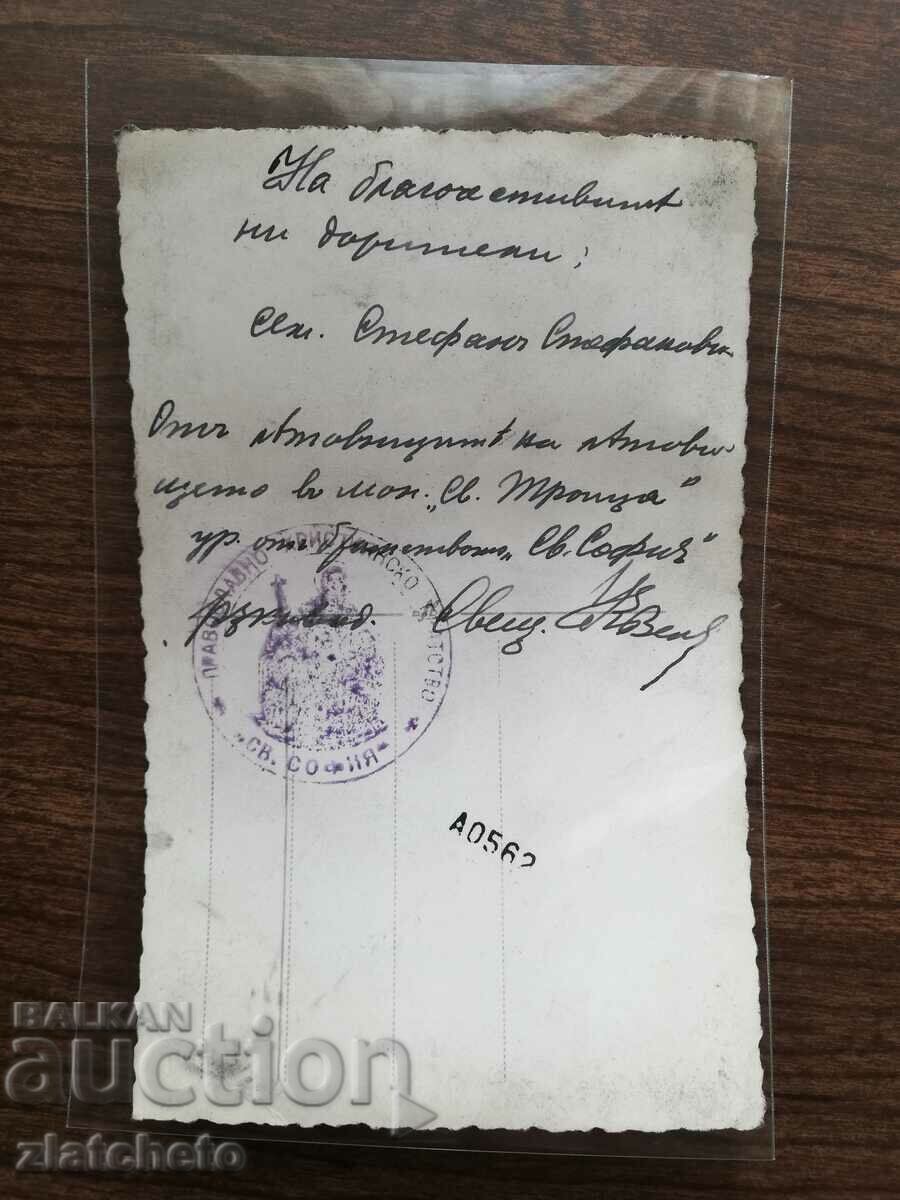 На благочестивитѣ
ни дарители:
сем. Стефанъ Стефанови
Отъ лѣтовницитѣ на лѣтови-
щето въ мон. „Св. Троица"
ур. отъ братството „Св. София"
Ржковод. Свещ.
ПРАВОСЛАВНО ХРИСТИЯНСКО БРАТСТВО
„СВ. СОФИЯ"
A0562
BALKAN
auction
zlatcheto